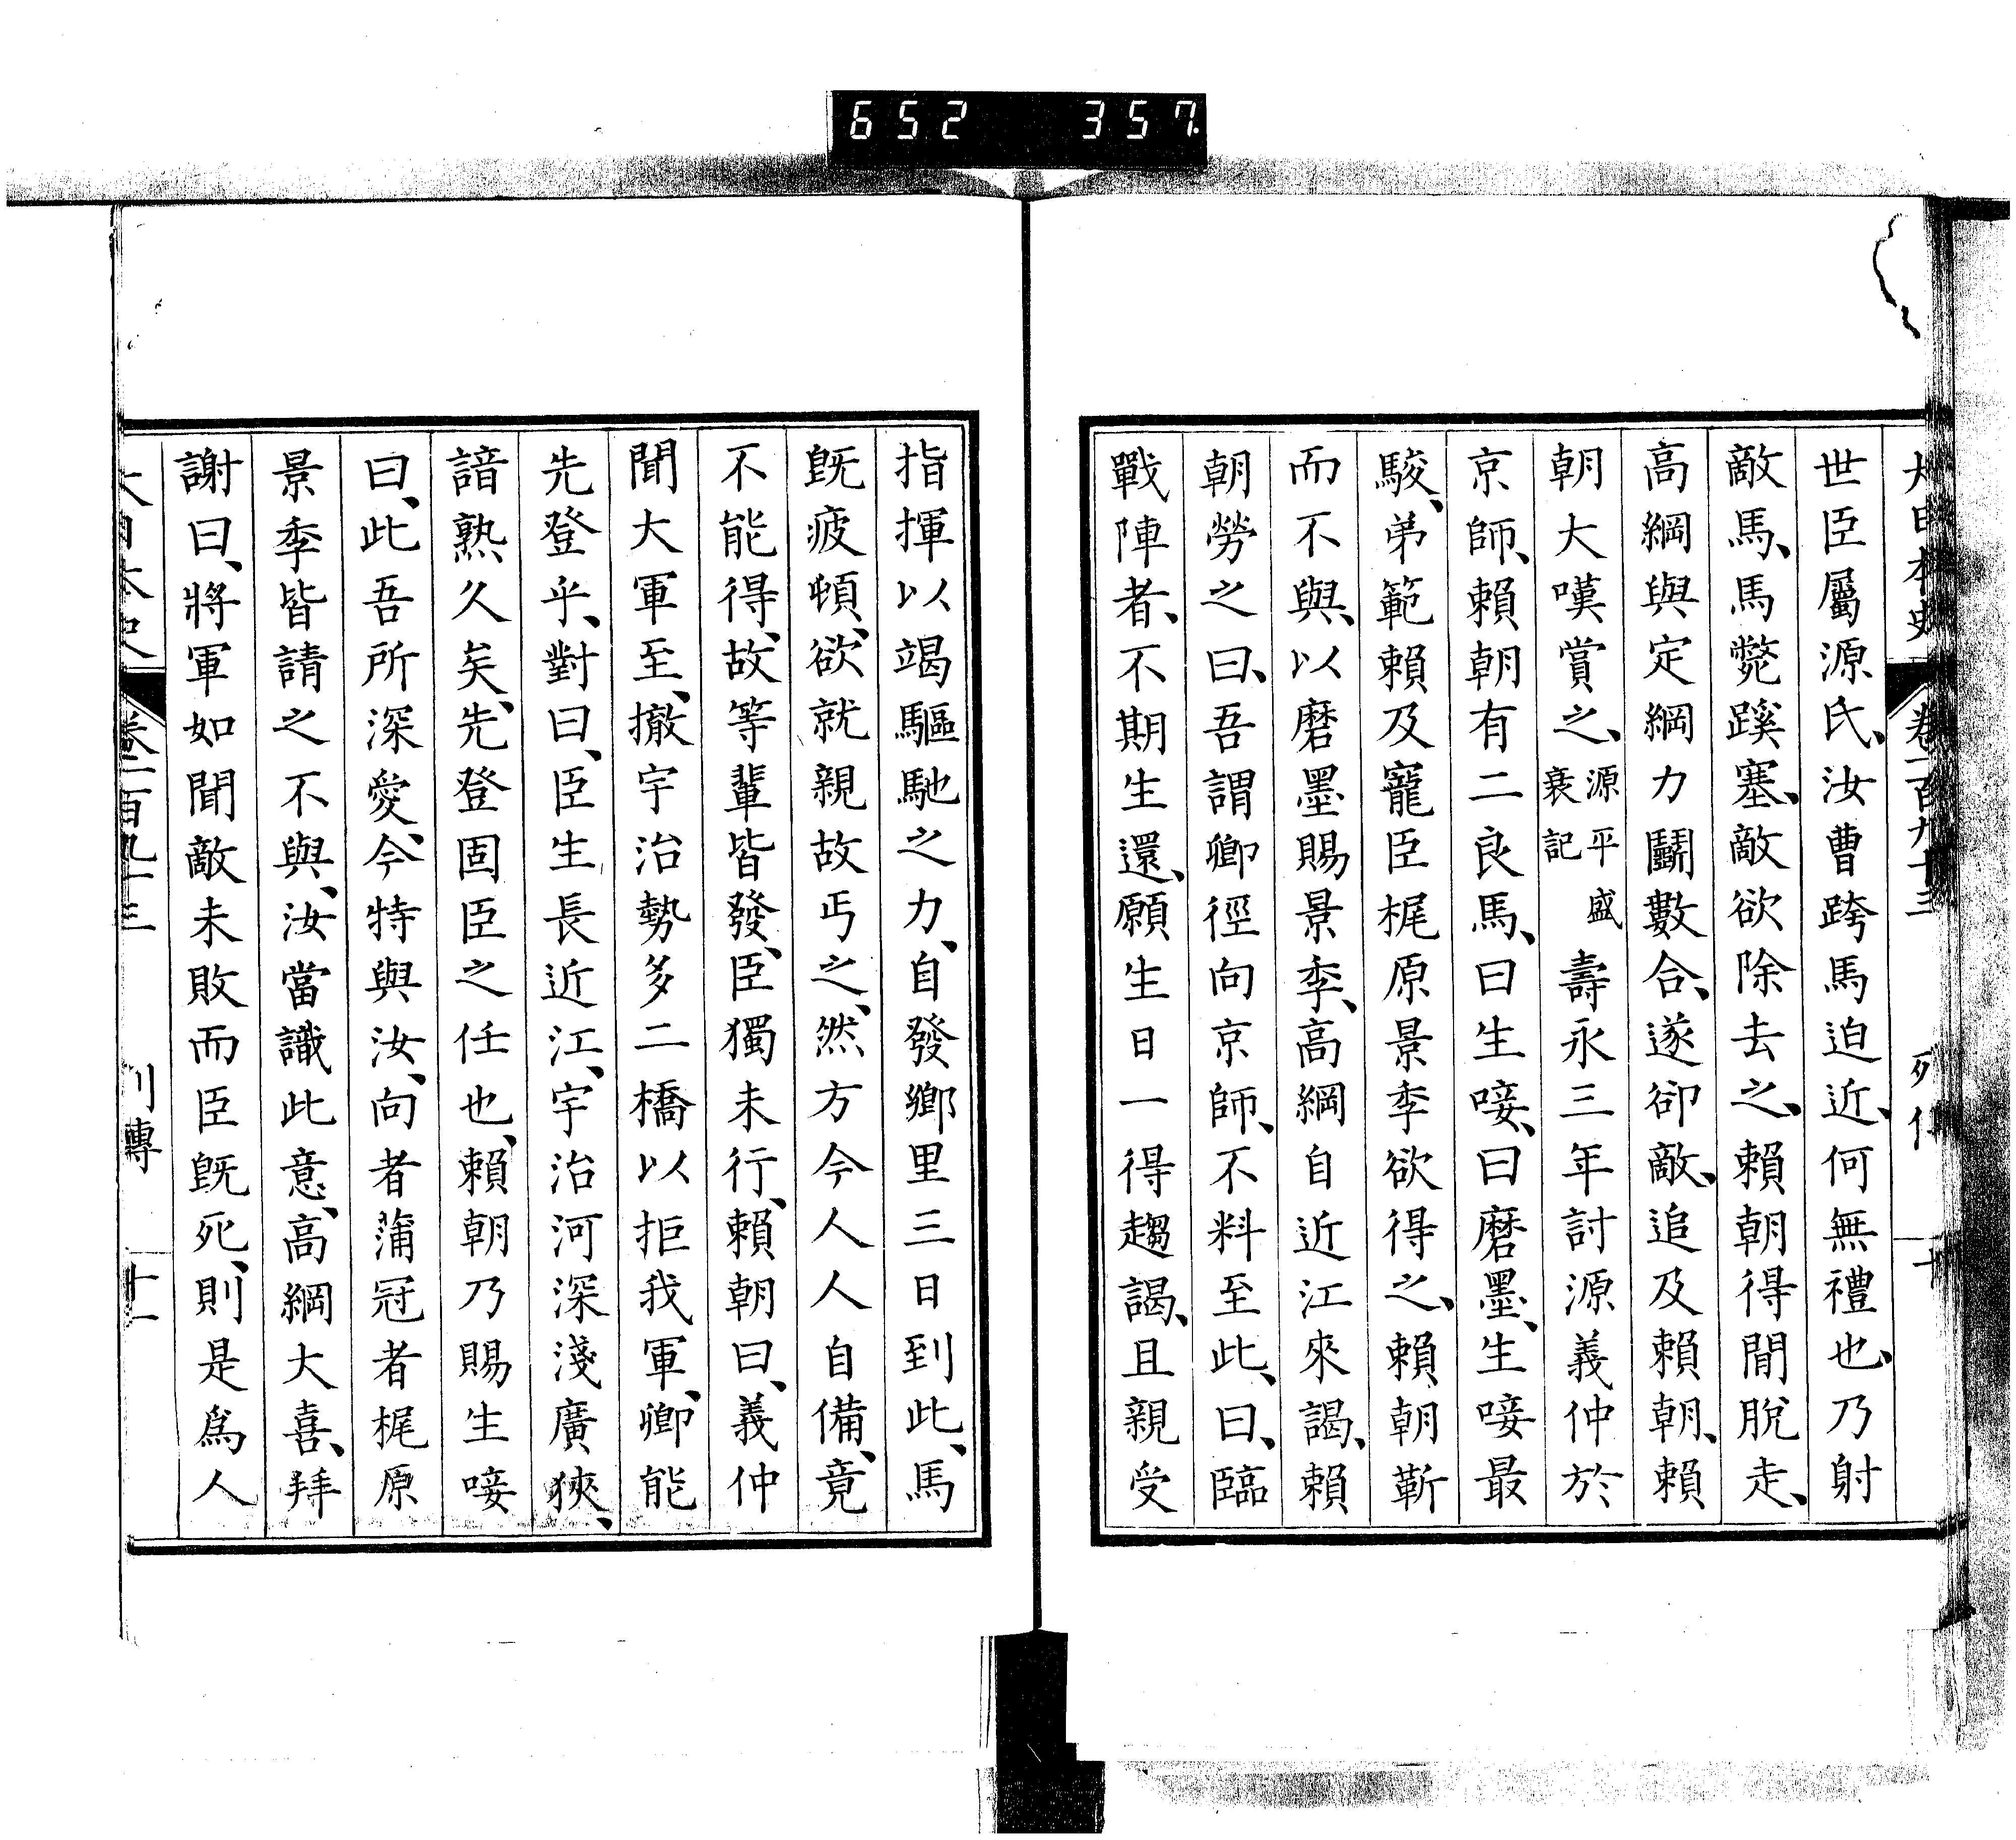 652 357
世臣屬源氏、汝曹跨馬迫近、何無禮也、乃射
敵馬、馬斃蹊塞、敵欲除去之、賴朝得閒脫走、
高綱與定綱力鬭數合、遂卻敵、追及賴朝、賴
朝大嘆賞之、源平盛衰記壽永三年討源義仲於
京師、賴朝有二良馬、曰生唼、曰磨墨、生唼最
駿、弟範賴及寵臣梶原景季欲得之、賴朝靳
而不與、以磨墨賜景季、高綱自近江來謁、賴
朝勞之曰、吾謂卿徑向京師、不料至此、曰、臨
戰陣者、不期生還、願生日一得趨謁、且親受
指揮以竭驅馳之力、自發鄉里三日到此、馬
旣疲頓、欲就親故丐之、然方今人人自備、竟
不能得、故等輩皆發、臣獨未行、賴朝曰、義仲
聞大軍至、撤宇治勢多二橋以拒我軍、卿能
先登乎、對曰、臣生長近江、宇治河深淺廣狹、
諳熟久矣、先登固臣之任也、賴朝乃賜生唼
曰、此吾所深愛、今特與汝、向者蒲冠者梶原
景季皆請之不與、汝當識此意、高綱大喜、拜
謝曰、將軍如聞敵未敗而臣旣死、則是爲人
大日本史 卷二百九十三 列傳 十一